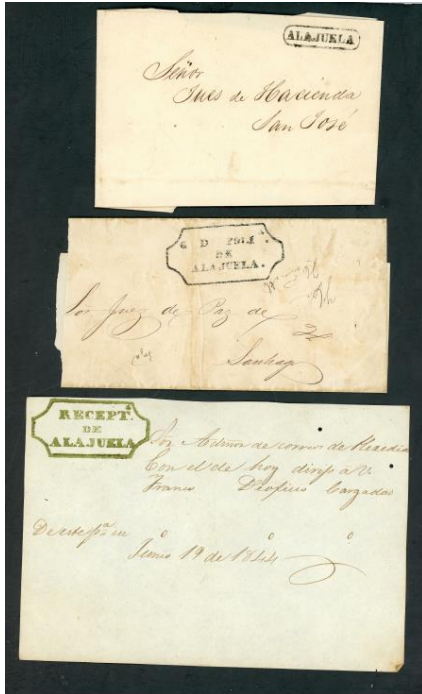 ALAJUELA
Señor
Jues de Hacienda
San José
G D POLI.ª
DE
ALAJUELA.
Sor Juez de Paz de
Santiago
RECEPT.ª
DE
ALAJUELA
Sor Admor de correos de Heredia
Con el de hoy dirijo a V.
Franco Dos oficios cargados
De este
Junio 19 de 1844